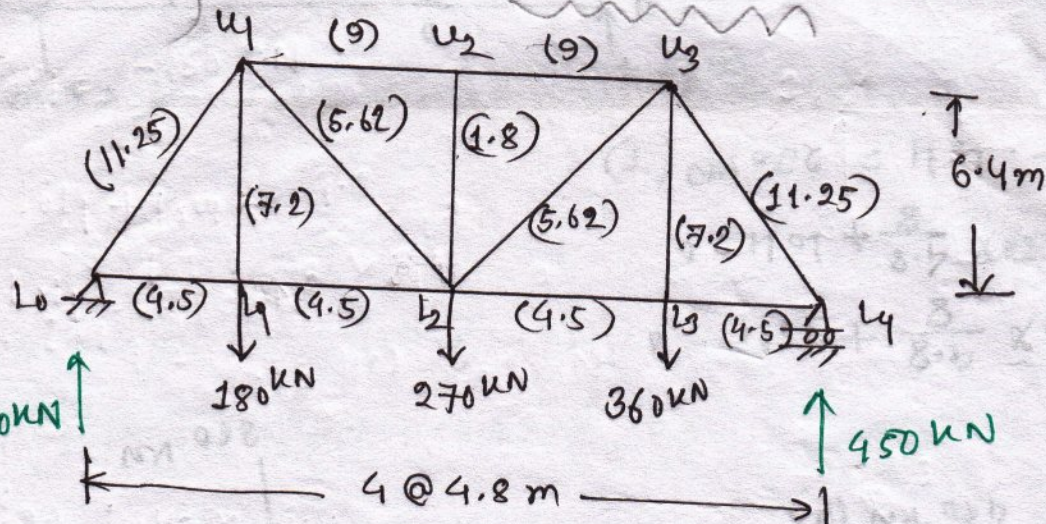 U1 (9) U2 (9) U3
(11.25) (5.62) (1.8) (5.62) (7.2) (7.2) (11.25) 6.4m
L0 (4.5) L1 (4.5) L2 (4.5) L3 (4.5) L4
180KN 270KN 360KN
0KN 450KN
4 @ 4.8m